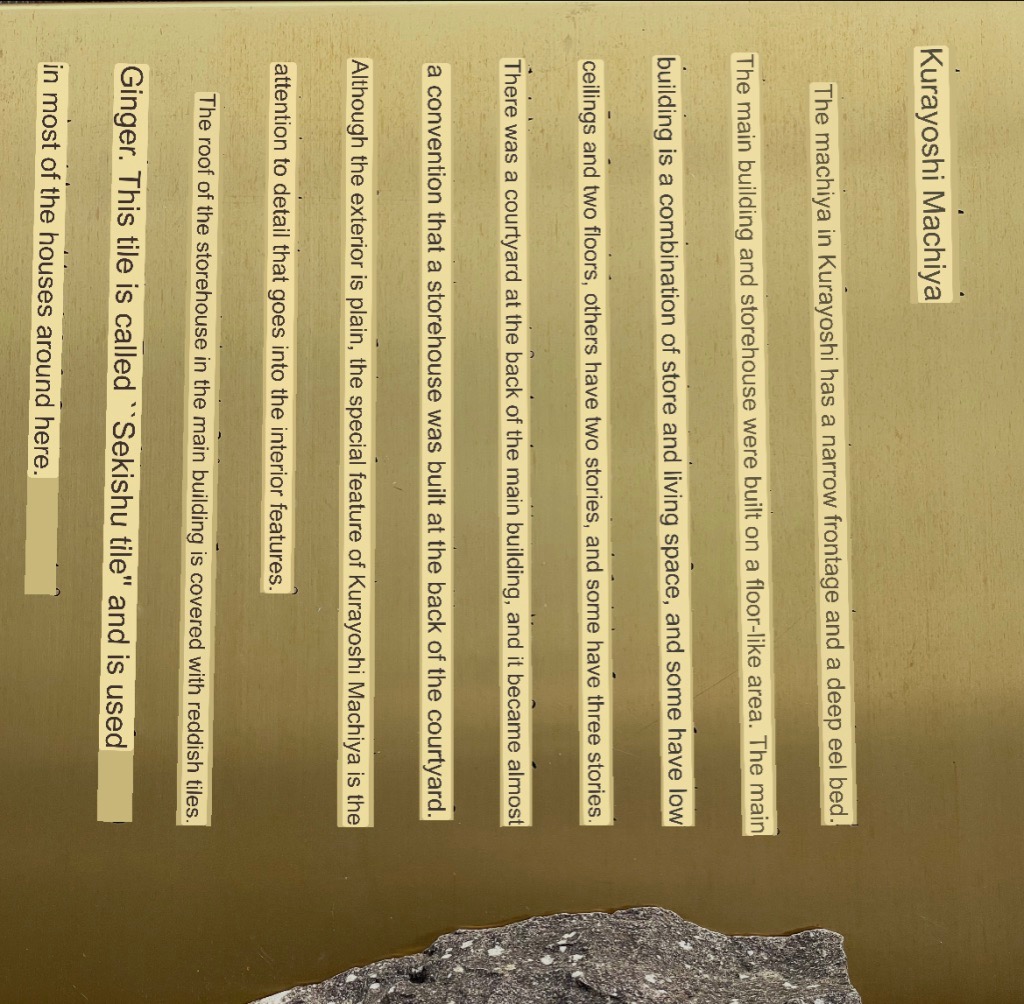 Kurayoshi Machiya
The machiya in Kurayoshi has a narrow frontage and a deep eel bed.
The main building and storehouse were built on a floor-like area. The main
building is a combination of store and living space, and some have low
ceilings and two floors, others have two stories, and some have three stories.
There was a courtyard at the back of the main building, and it became almost
a convention that a storehouse was built at the back of the courtyard.
Although the exterior is plain, the special feature of Kurayoshi Machiya is the
attention to detail that goes into the interior features.
The roof of the storehouse in the main building is covered with reddish tiles.
Ginger. This tile is called ``Sekishu tile" and is used
in most of the houses around here.